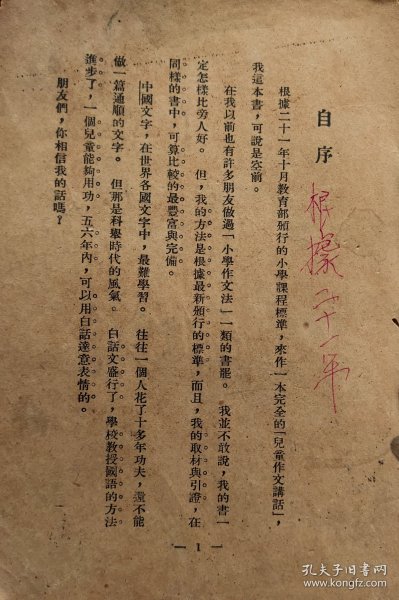 自序
根據二十一年
根據二十一年十月教育部頒行的小學課程標準，來作一本完全的「兒童作文講話」，
我這本書，可說是空前。
在我以前也有許多朋友做過「小學作文法」一類的書罷。我並不敢說，我的書一
定怎樣比旁人好。但，我的方法是根據最新頒行的標準，而且，我的取材與引證，在
同樣的書中，可算比較的最豐富與完備。
中國文字，在世界各國文字中，最難學習。往往一個人花了十多年功夫，還不能
做一篇通順的文字。但那是科舉時代的風氣。白話文盛行了，學校教授國語的方法
進步了，一個兒童能夠用功，五六年內，可以用白話達意表情的。
朋友們，你相信我的話嗎？
— 1 —
孔夫子旧书网
www.kongfz.com